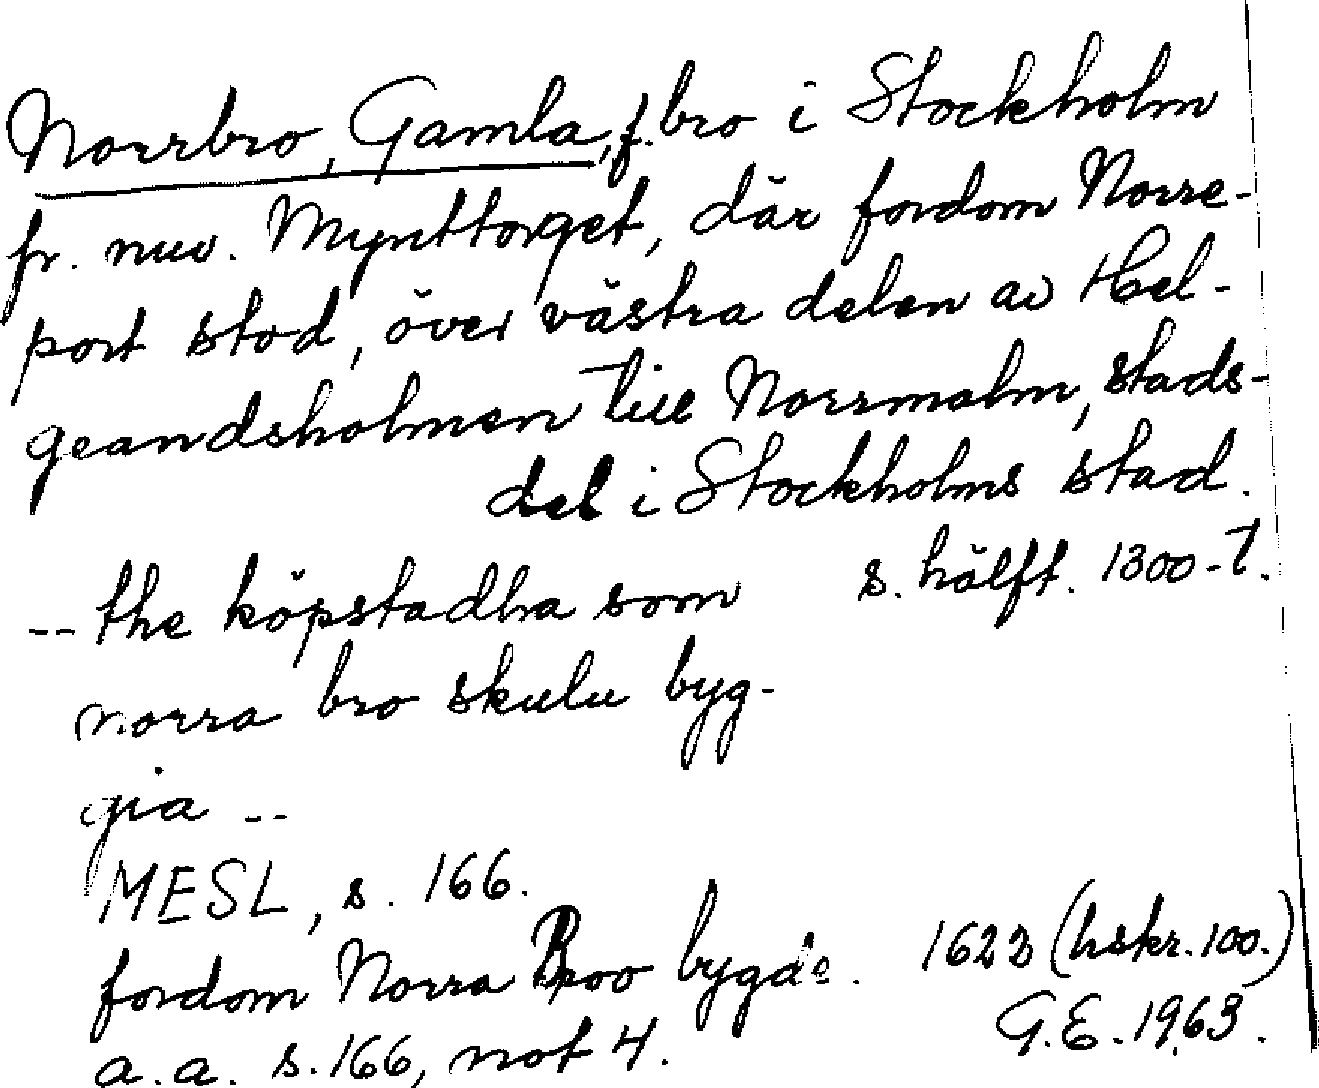 Norrbro, Gamla, f. bro i Stockholm
fr. nuv. Mynttorget, där fordom Norre-
port stod, över västra delen av Hel-
geandsholmen till Norrmalm, stads-
del i Stockholms stad.
-- the köpstadha som s. hälft. 1300-t.
norra bro skulu byg-
gia --
MESL, s. 166.
fordom Norra Broo bygde. 1623 (hskr. 100.)
a.a. s. 166, not 4. G.E. 1963.